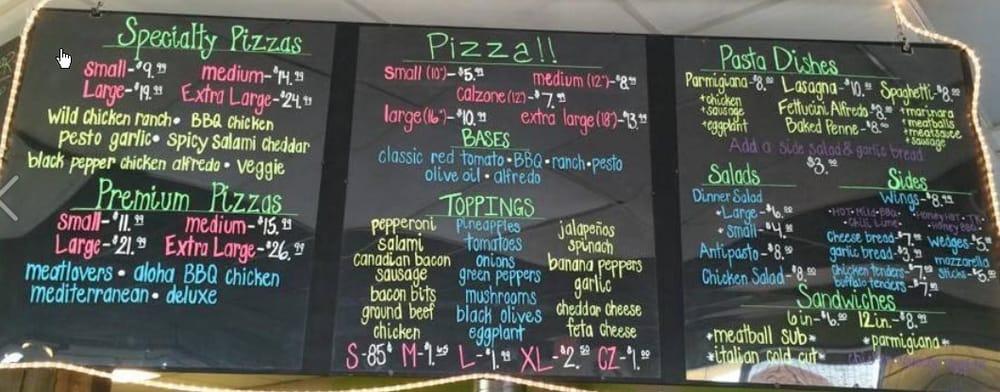 Specialty Pizzas
small-$9.99 medium-$14.99
Large-$19.99 Extra Large-$24.99
wild chicken ranch • BBQ chicken
pesto garlic • spicy salami cheddar
black pepper chicken alfredo • veggie
Premium Pizzas
small-$11.99 medium-$15.99
Large-$21.99 Extra Large-$26.99
meatlovers • aloha BBQ chicken
mediterranean • deluxe
Pizza!!
small (10")-$5.99 medium (12")-$8.99
calzone (12)-$7.99
large (16")-$10.99 extra large (18")-$13.99
BASES
classic red tomato • BBQ • ranch • pesto
olive oil • alfredo
TOPPINGS
pepperoni pineapples jalapeños
salami tomatoes spinach
canadian bacon onions banana peppers
sausage green peppers garlic
bacon bits mushrooms cheddar cheese
ground beef black olives feta cheese
chicken eggplant
S-85¢ M-$1. L-$1. XL-$2.50 CZ-$1.
Pasta Dishes
Parmigiana-$8.00 Lasagna-$10.00 Spaghetti-$8.00
+chicken
+sausage
+eggplant
Fettucini Alfredo-$8.00
Baked Penne-$8.00
+marinara
+meatballs
+meatsauce
+sausage
Add a side salad & garlic bread
$3.00
Salads
Dinner Salad
*Large-$6.00
*small-$4.00
Antipasto-$8.00
Chicken Salad-$8.00
Sides
Wings-$8.99
•HOT•Mild•BBQ•
Chili Lime•
•Honey HOT•
Honey BBQ•
cheese bread-$7.
garlic bread-$3.99
chicken tenders-$7.
buffalo tenders-$7.
Wedges-$5.
mozzarella
sticks-$5.
Sandwiches
6in-$6.00 12in.-$8.99
*meatball sub* *parmigiana*
*italian cold cut*